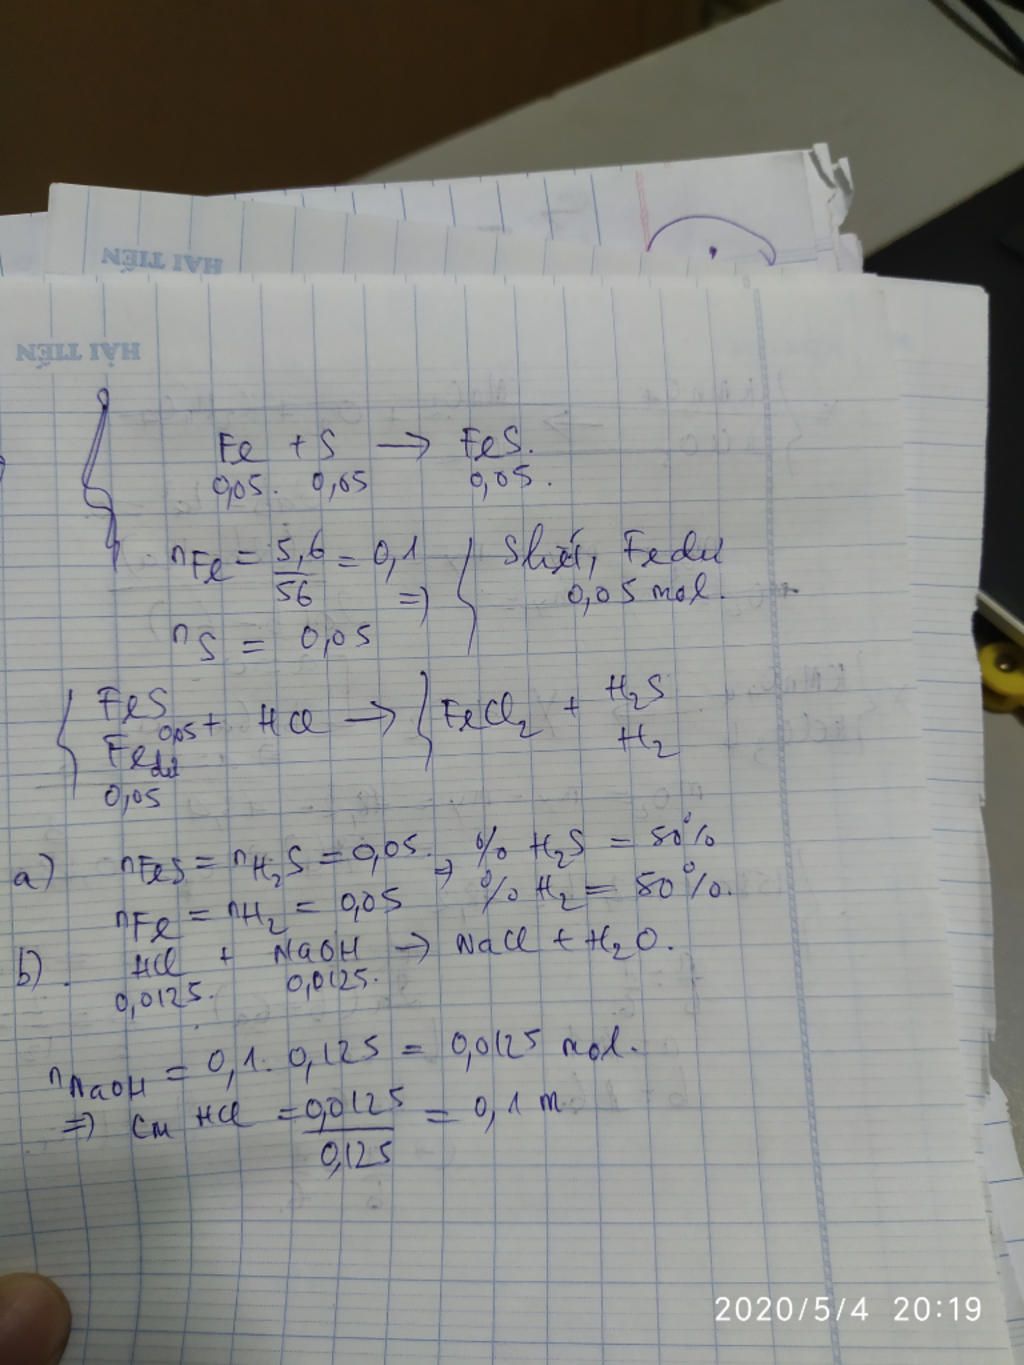 HẢI TIẾN
HẢI TIẾN
Fe + S → FeS.
0,05. 0,05 0,05.
nFe = 5,6/56 = 0,1
=> { S hết, Fe dư
0,05 mol.
nS = 0,05
{ FeS 0,05 + HCl → { FeCl2 + H2S
Fe dư H2
0,05
a) nFeS = nH2S = 0,05. => % H2S = 50%
nFe = nH2 = 0,05 % H2 = 50%.
b). HCl + NaOH → NaCl + H2O.
0,0125. 0,0125.
nNaOH = 0,1. 0,125 = 0,0125 mol.
=> CM HCl = 0,0125/0,125 = 0,1 M
2020/5/4 20:19